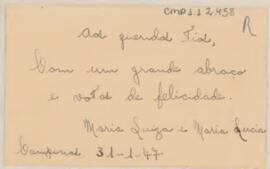 CMP 1.1.2.458
R
Aos queridos Tios,
Com um grande abraço
e votos de felicidade.
Maria Luiza e Maria Lucia
Campinas 31-1-47